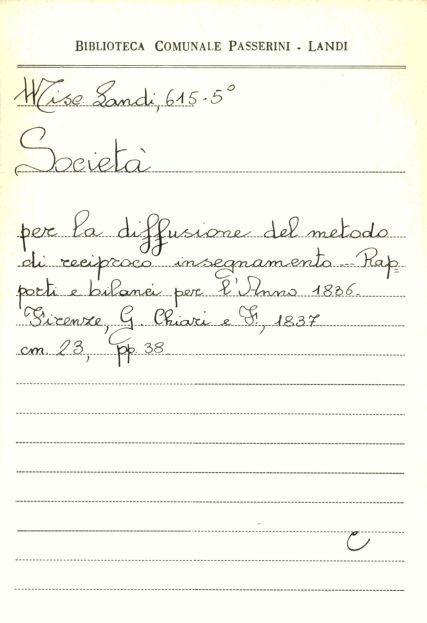 BIBLIOTECA COMUNALE PASSERINI - LANDI
Misc Landi, 615-5°
Società
per la diffusione del metodo
di reciproco insegnamento -- Rap=
porti e bilanci per l'Anno 1836.
Firenze, G. Chiari e F., 1837
cm. 23, pp. 38
C